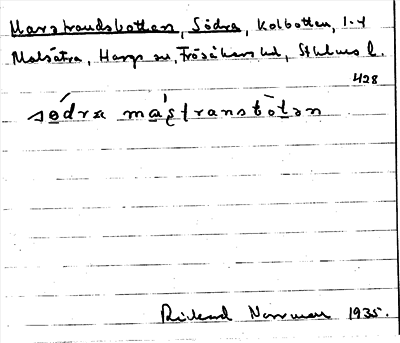 Marstrandsbotten, Södra, Kolbotten, 1-4
Malsätra, Hargs sn, Frösåkers hd, Sthlms l.
428
södra ma̍s̨transbo̅tən
Rickard Norrman 1935.